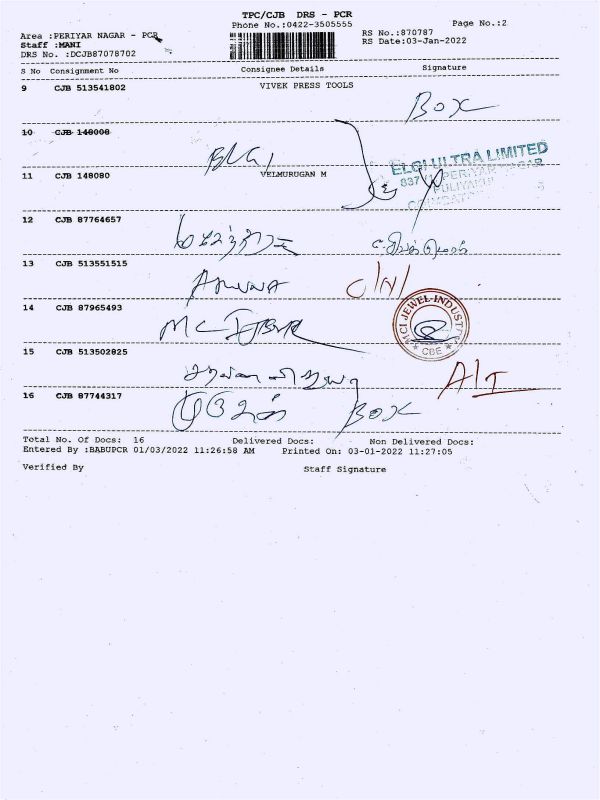 TPC/CJB DRS - PCR
Phone No.:0422-3505555
Page No.:2
Area :PERIYAR NAGAR - PCR
RS No.:870787
Staff :MANI
RS Date:03-Jan-2022
DRS No. :DCJB87078702
S No Consignment No Consignee Details Signature
9 CJB 513541802 VIVEK PRESS TOOLS
BOX
10 CJB 148008
ELGI ULTRA LIMITED
11 CJB 148080 VELMURUGAN M
12 CJB 87764657
13 CJB 513551515
Aruna
14 CJB 87965493
MCI JEWEL INDUST
CBE
15 CJB 513502825
16 CJB 87744317
BOX
Total No. Of Docs: 16 Delivered Docs: Non Delivered Docs:
Entered By :BABUPCR 01/03/2022 11:26:58 AM Printed On: 03-01-2022 11:27:05
Verified By Staff Signature